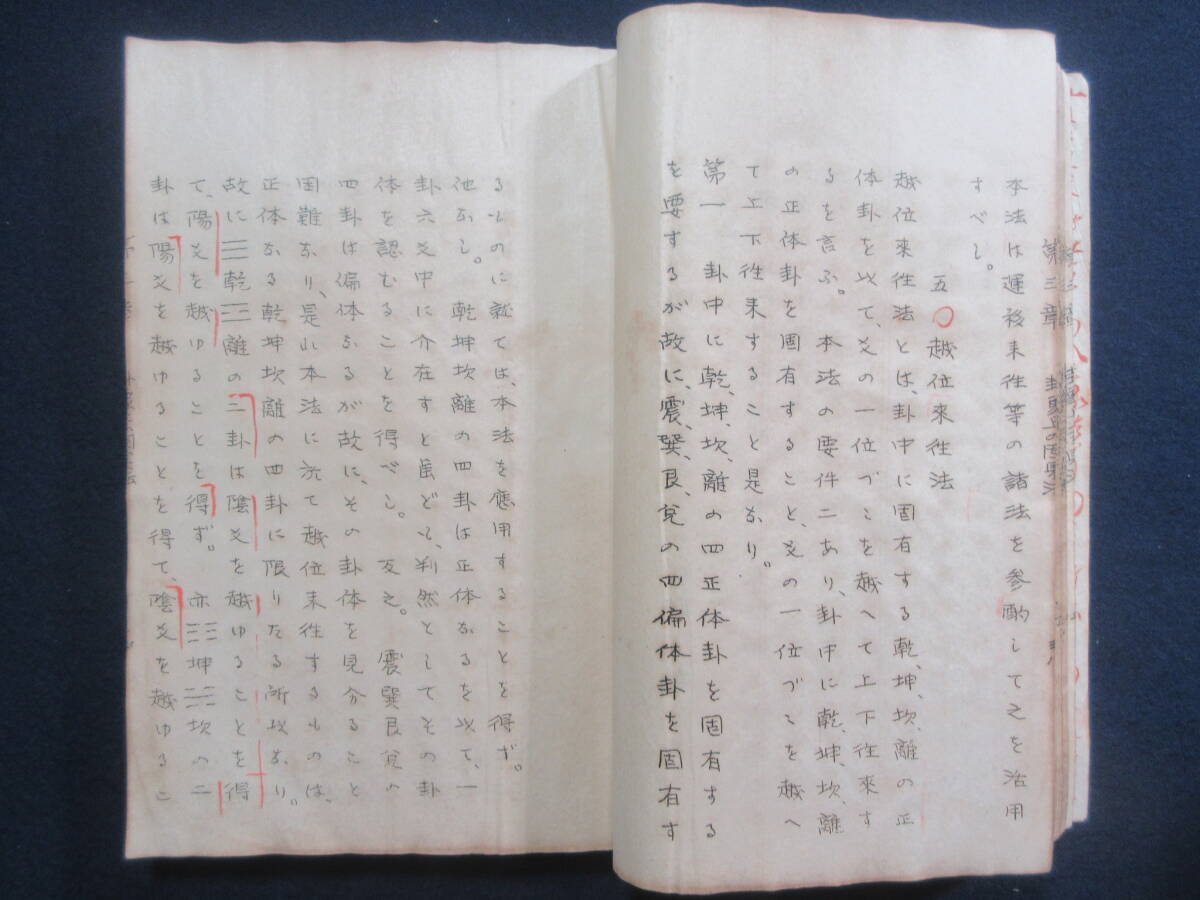 本法は運移来往等の諸法を参酌して之を活用
すべし。
五〇越位來往法
越位來往法とは、卦中に固有する乾、坤、坎、離の正
体卦を以て、爻の一位づゝを越へて上下往來す
るを言ふ。本法の要件二あり、卦中に乾、坤、坎、離
の正体卦を固有すること、爻の一位づゝを越へ
て上下往来すること是なり。
第一 卦中に乾、坤、坎、離の四正体卦を固有する
を要するが故に、震、巽、艮、兌の四偏体卦を固有す
るものに就ては、本法を應用することを得ず。
他なし。乾坤坎離の四卦は正体なるを以て、一
卦六爻中に介在すと虽ども、判然としてその卦
体を認むることを得べし。反之。震巽艮兌の
四卦は偏体なるが故に、その卦体を見分ること
困難なり、是れ本法に於て越位来往するものは、
正体なる乾坤坎離の四卦に限りたる所以なり。
故に☰乾☲離の二卦は陰爻を越ゆることを得
て、陽爻を越ゆることを得ず。亦☷坤☵坎の二
卦は陽爻を越ゆることを得て、陰爻を越ゆるこ